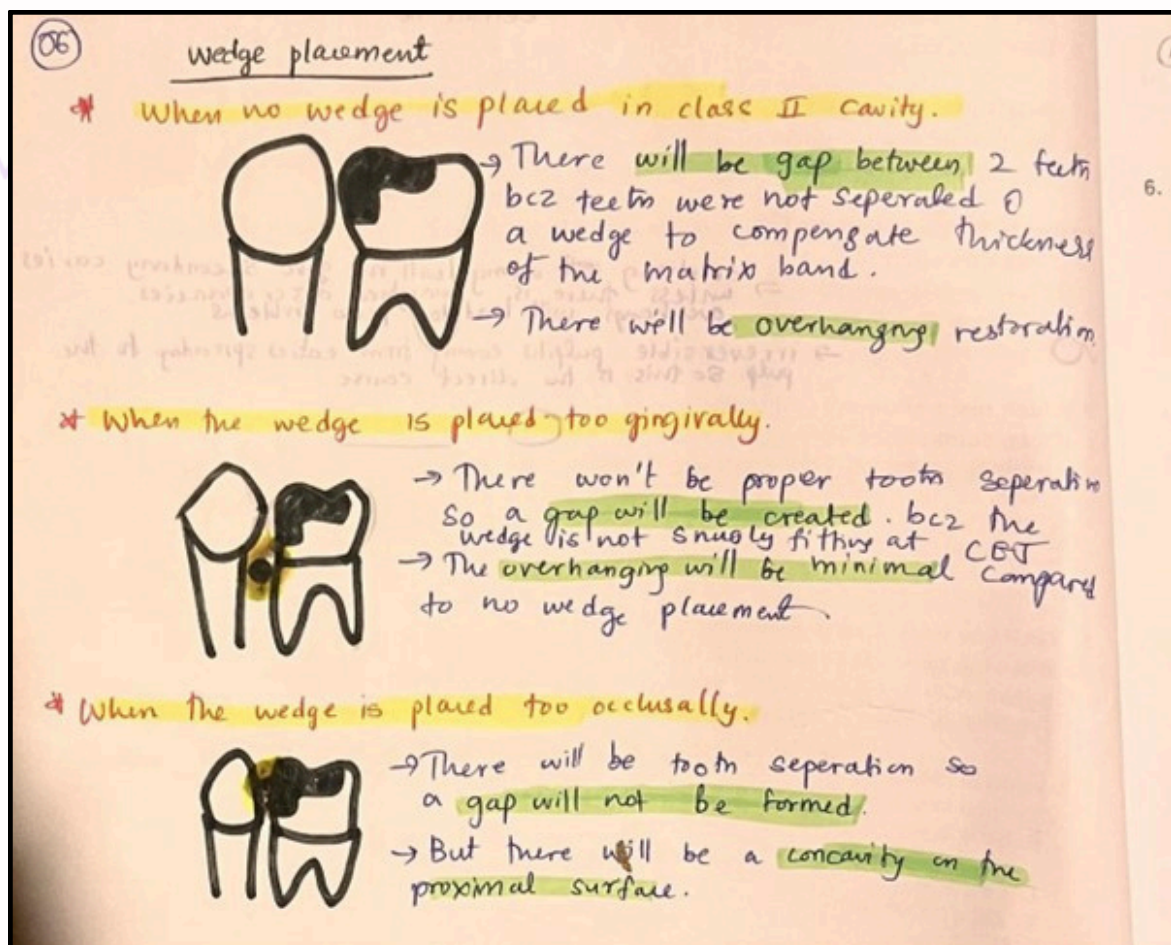 06
wedge placement
* When no wedge is placed in class II cavity.
→ There will be gap between 2 teeth
bcz teeth were not seperated
a wedge to compensate thickness
of the matrix band.
→ There will be overhanging restoration
* When the wedge is placed too gingivally.
→ There won't be proper tooth seperation
so a gap will be created. bcz the
wedge is not snugly fitting at CEJ
→ The overhanging will be minimal compared
to no wedge placement.
* When the wedge is placed too occlusally.
→ There will be tooth seperation so
a gap will not be formed.
→ But there will be a concavity on the
proximal surface.
6.